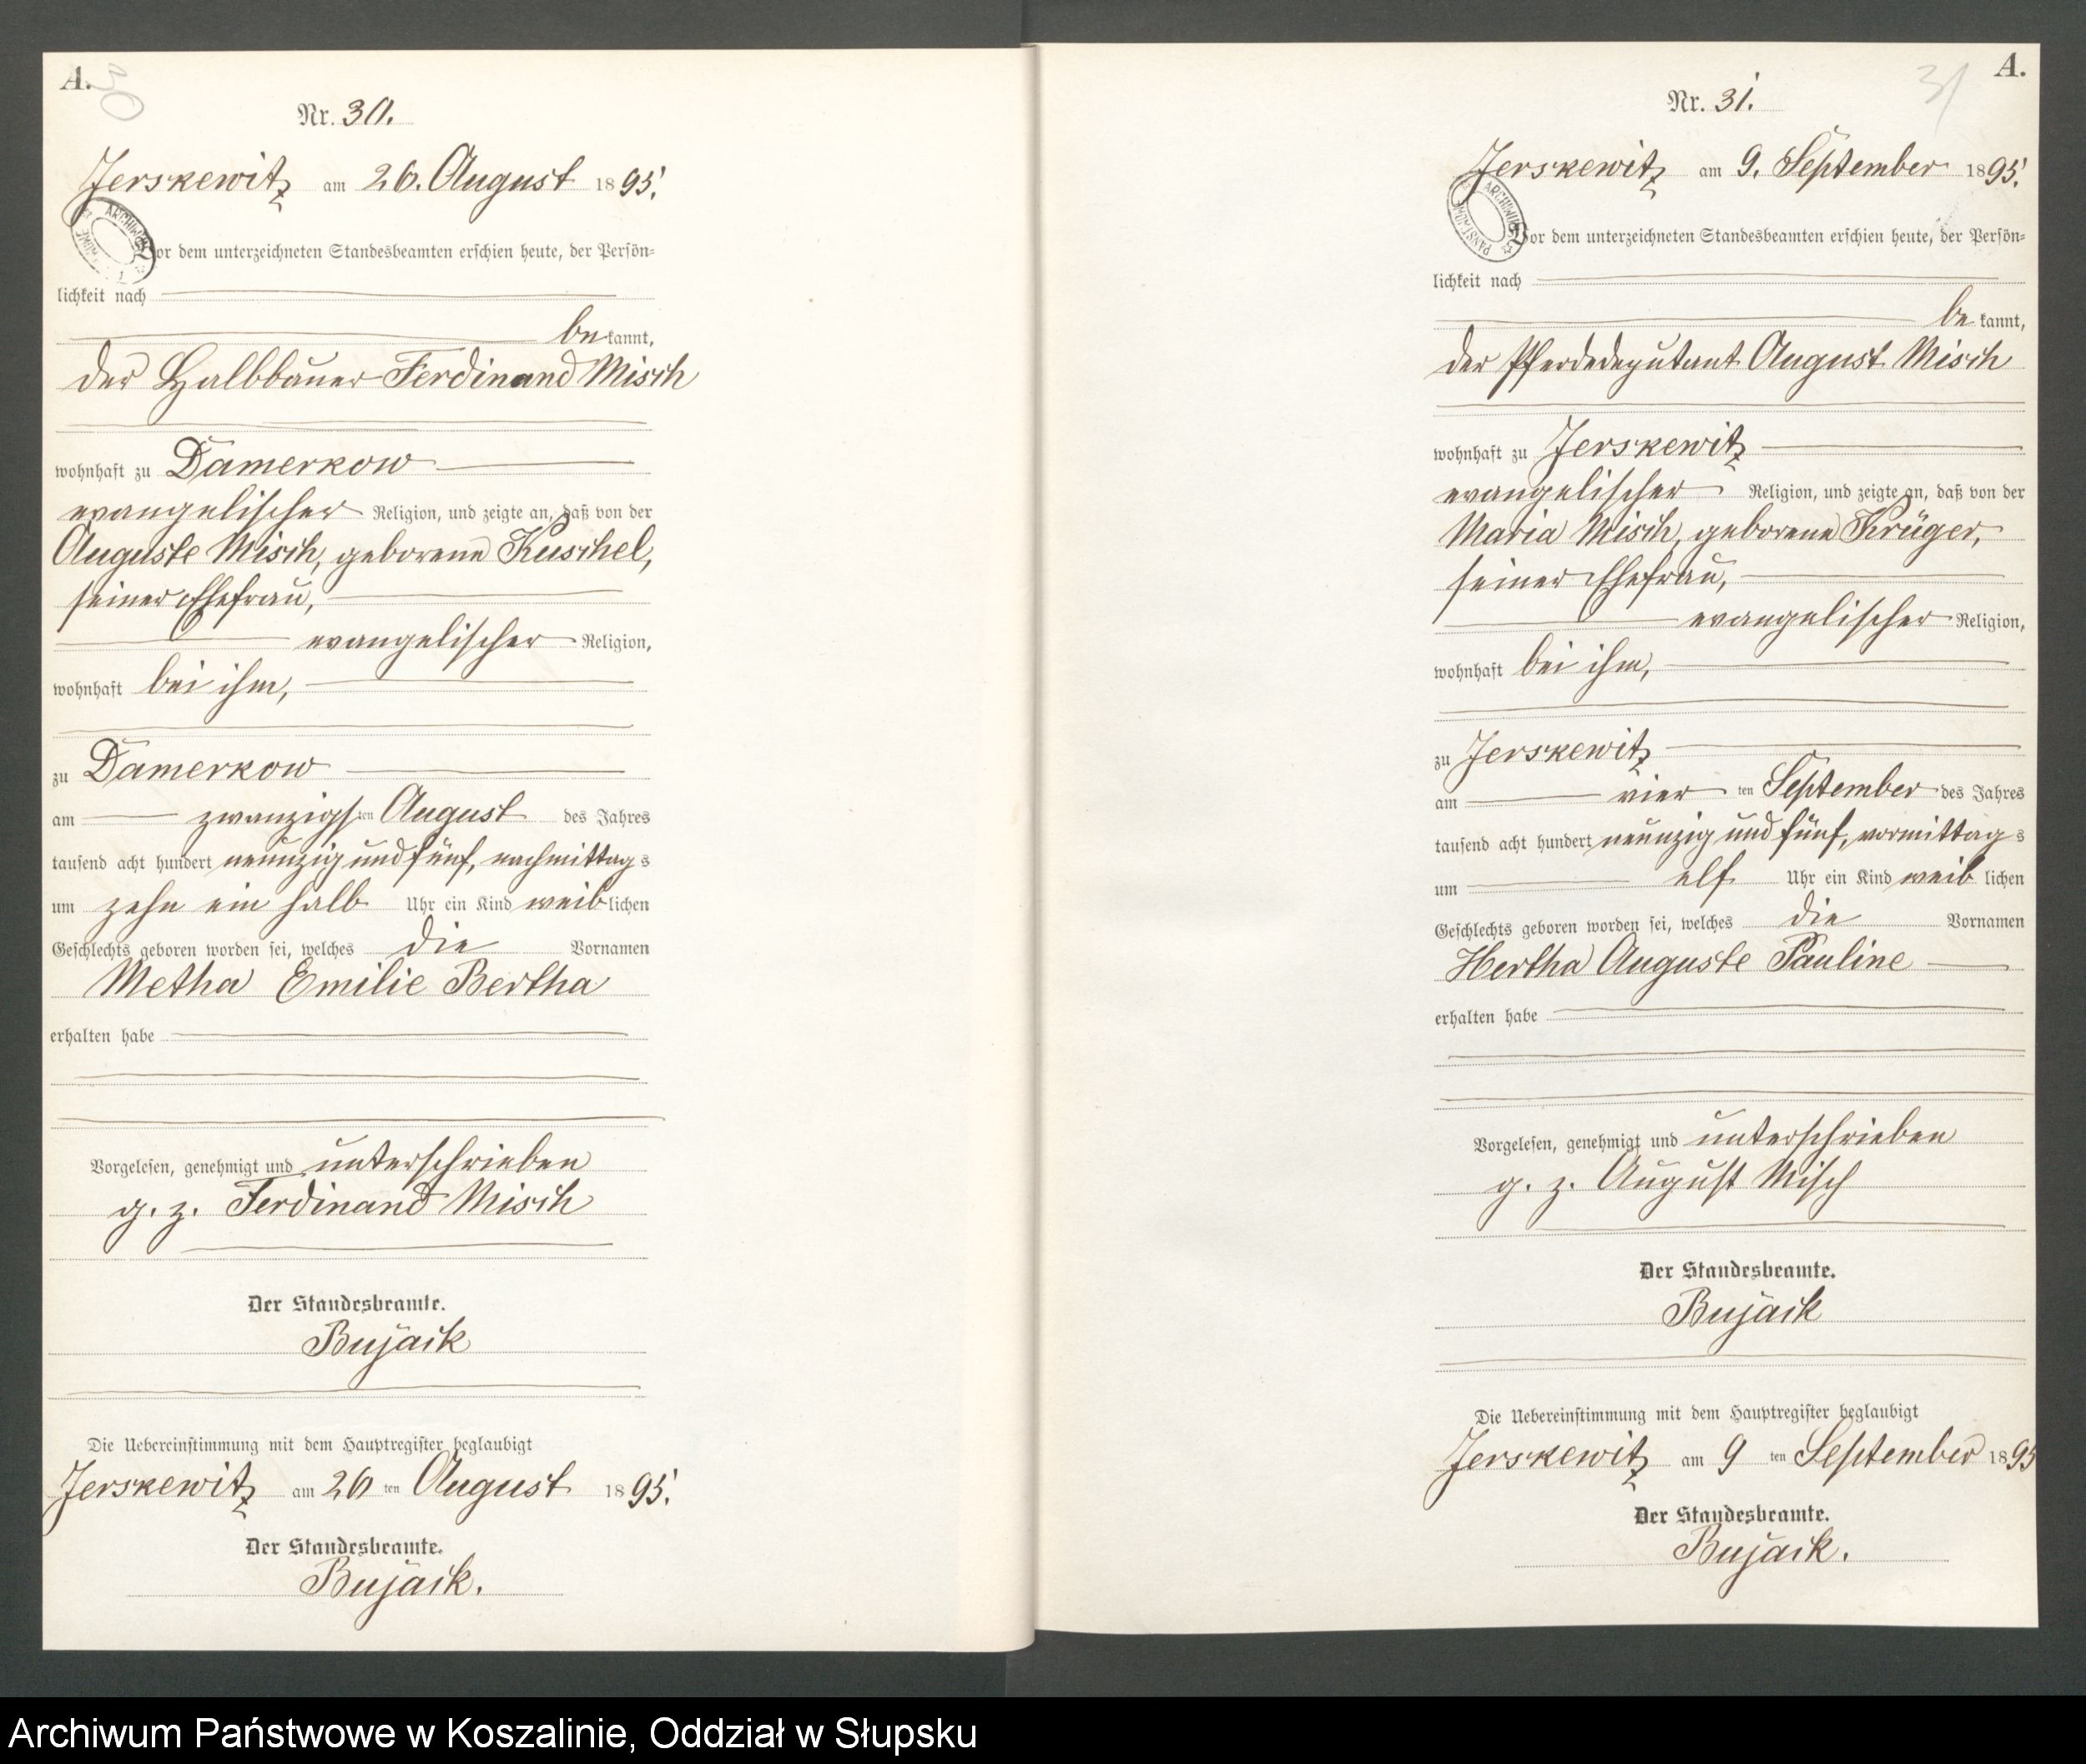 A.
30
Nr. 30.
Jerskewitz am 26. August 1895.
ARCHIWUM
Vor dem unterzeichneten Standesbeamten erschien heute, der Persön-
lichkeit nach
bekannt,
der Halbbauer Ferdinand Misch
wohnhaft zu Damerkow
evangelischer Religion, und zeigte an, daß von der
Auguste Misch, geborene Kuschel,
seiner Ehefrau,
evangelischer Religion,
wohnhaft bei ihm,
zu Damerkow
am zwanzigsten August des Jahres
tausend acht hundert neunzig und fünf, nachmittags
um zehn ein halb Uhr ein Kind weiblichen
Geschlechts geboren worden sei, welches die Vornamen
Metha Emilie Bertha
erhalten habe
Vorgelesen, genehmigt und unterschrieben
g. z. Ferdinand Misch
Der Standesbeamte.
Bujack
Die Uebereinstimmung mit dem Hauptregister beglaubigt
Jerskewitz am 26 ten August 1895.
Der Standesbeamte.
Bujack.
A.
31
Nr. 31.
Jerskewitz am 9. September 1895.
ARCHIWUM PAŃSTWOWE
Vor dem unterzeichneten Standesbeamten erschien heute, der Persön-
lichkeit nach
bekannt,
der Pferdedeputant August Misch
wohnhaft zu Jerskewitz
evangelischer Religion, und zeigte an, daß von der
Maria Misch, geborene Krüger,
seiner Ehefrau,
evangelischer Religion,
wohnhaft bei ihm,
zu Jerskewitz
am vier ten September des Jahres
tausend acht hundert neunzig und fünf, vormittags
um elf Uhr ein Kind weiblichen
Geschlechts geboren worden sei, welches die Vornamen
Hertha Auguste Pauline
erhalten habe
Vorgelesen, genehmigt und unterschrieben
g. z. August Misch
Der Standesbeamte.
Bujack
Die Uebereinstimmung mit dem Hauptregister beglaubigt
Jerskewitz am 9 ten September 1895
Der Standesbeamte.
Bujack.
Archiwum Państwowe w Koszalinie, Oddział w Słupsku